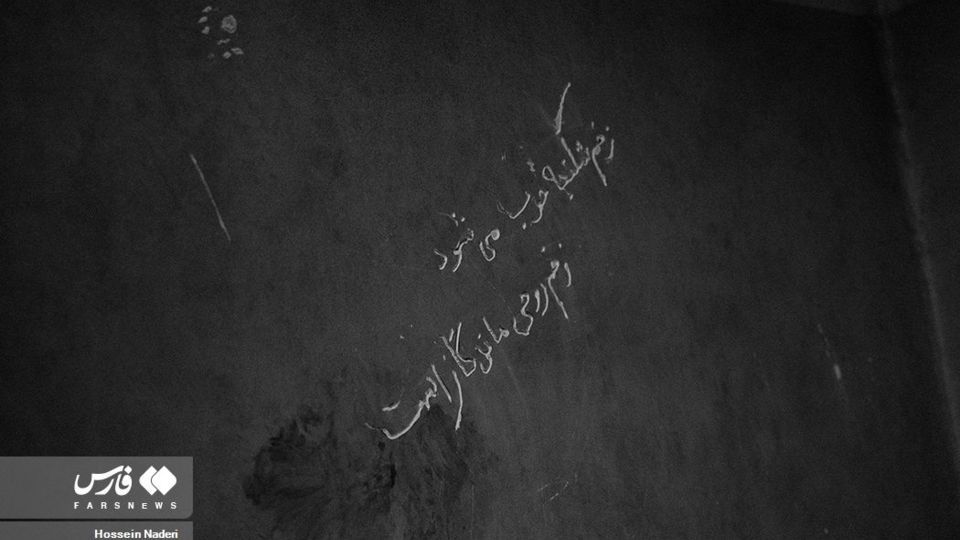 زخم شکنجه خوب می شود
زخم روحی ماندگار است
فارس
FARSNEWS
Hossein Naderi